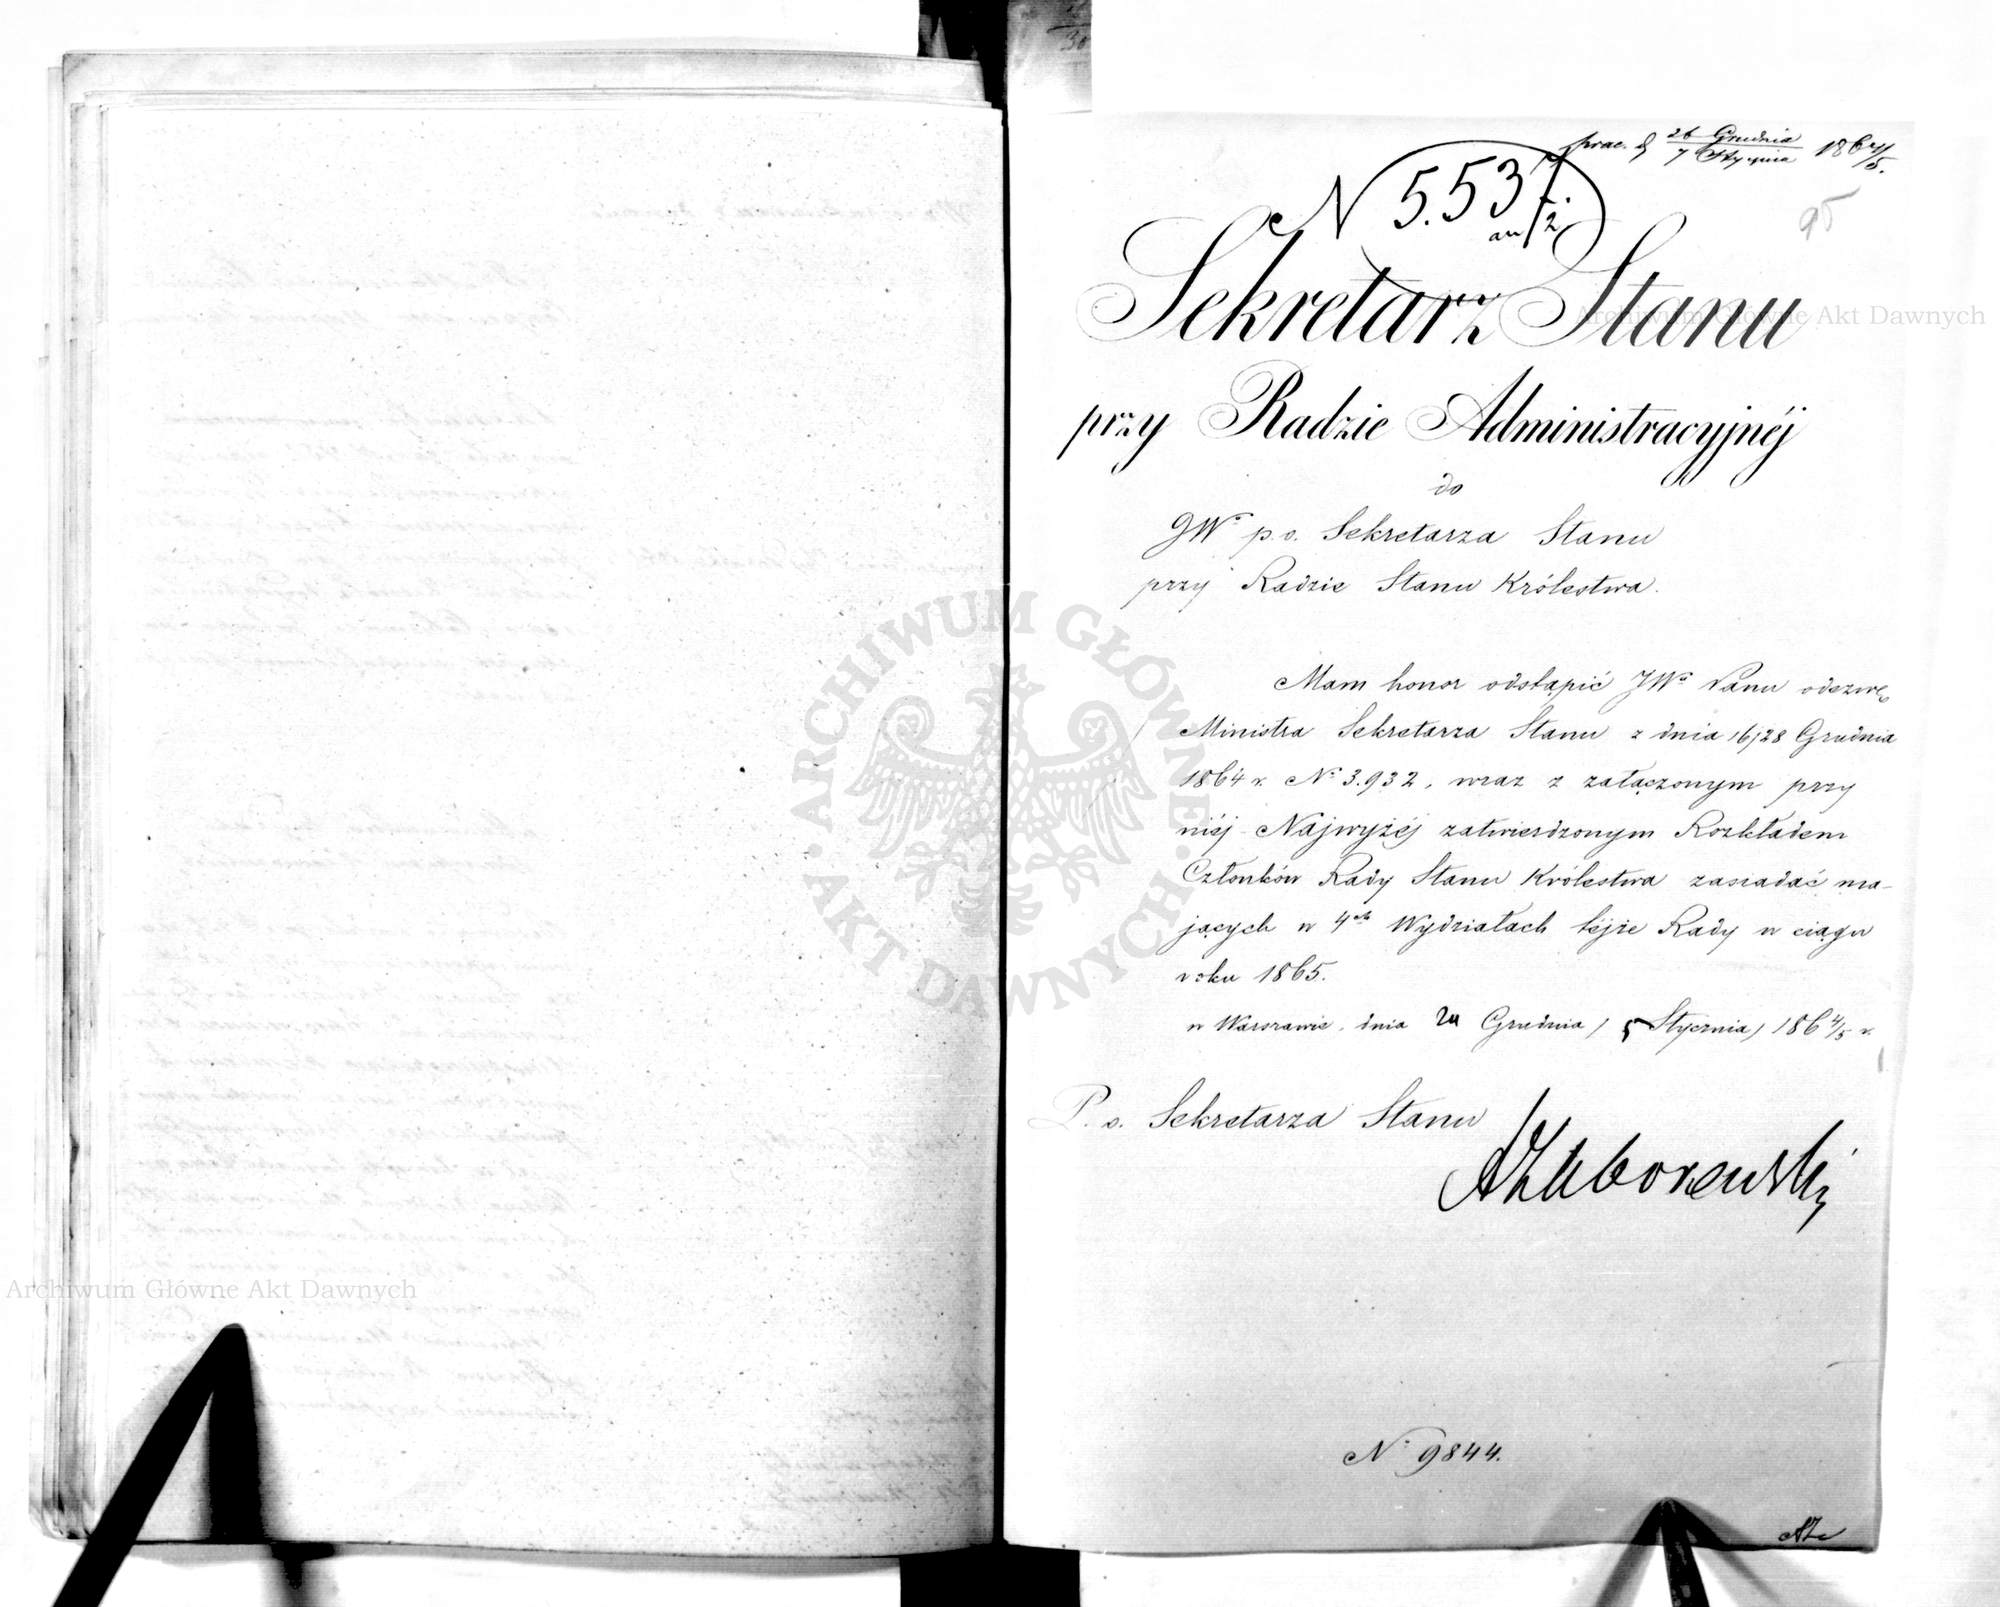 prac. d. 26 Grudnia / 7 Stycznia 1864/5.
N 5.537
95
Sekretarz Stanu
przy Radzie Administracyjnéj
do
JWo p.o. Sekretarza Stanu
przy Radzie Stanu Królestwa.
Mam honor odstąpić JWu Panu odezwę
Ministra Sekretarza Stanu z dnia 16/28 Grudnia
1864 r. No 3.932, wraz z załączonym przy
niéj Najwyżéj zatwierdzonym Rozkładem
Członków Rady Stanu Królestwa zasiadać ma-
jących w 4ch Wydziałach téjże Rady w ciągu
roku 1865.
w Warszawie, dnia 24 Grudnia / 5 Stycznia / 1864/5 r.
P. o. Sekretarza Stanu
AZaborowski
No 9844.
AZ
Archiwum Główne Akt Dawnych
Archiwum Główne Akt Dawnych
ARCHIWUM GŁÓWNE · AKT DAWNYCH ·